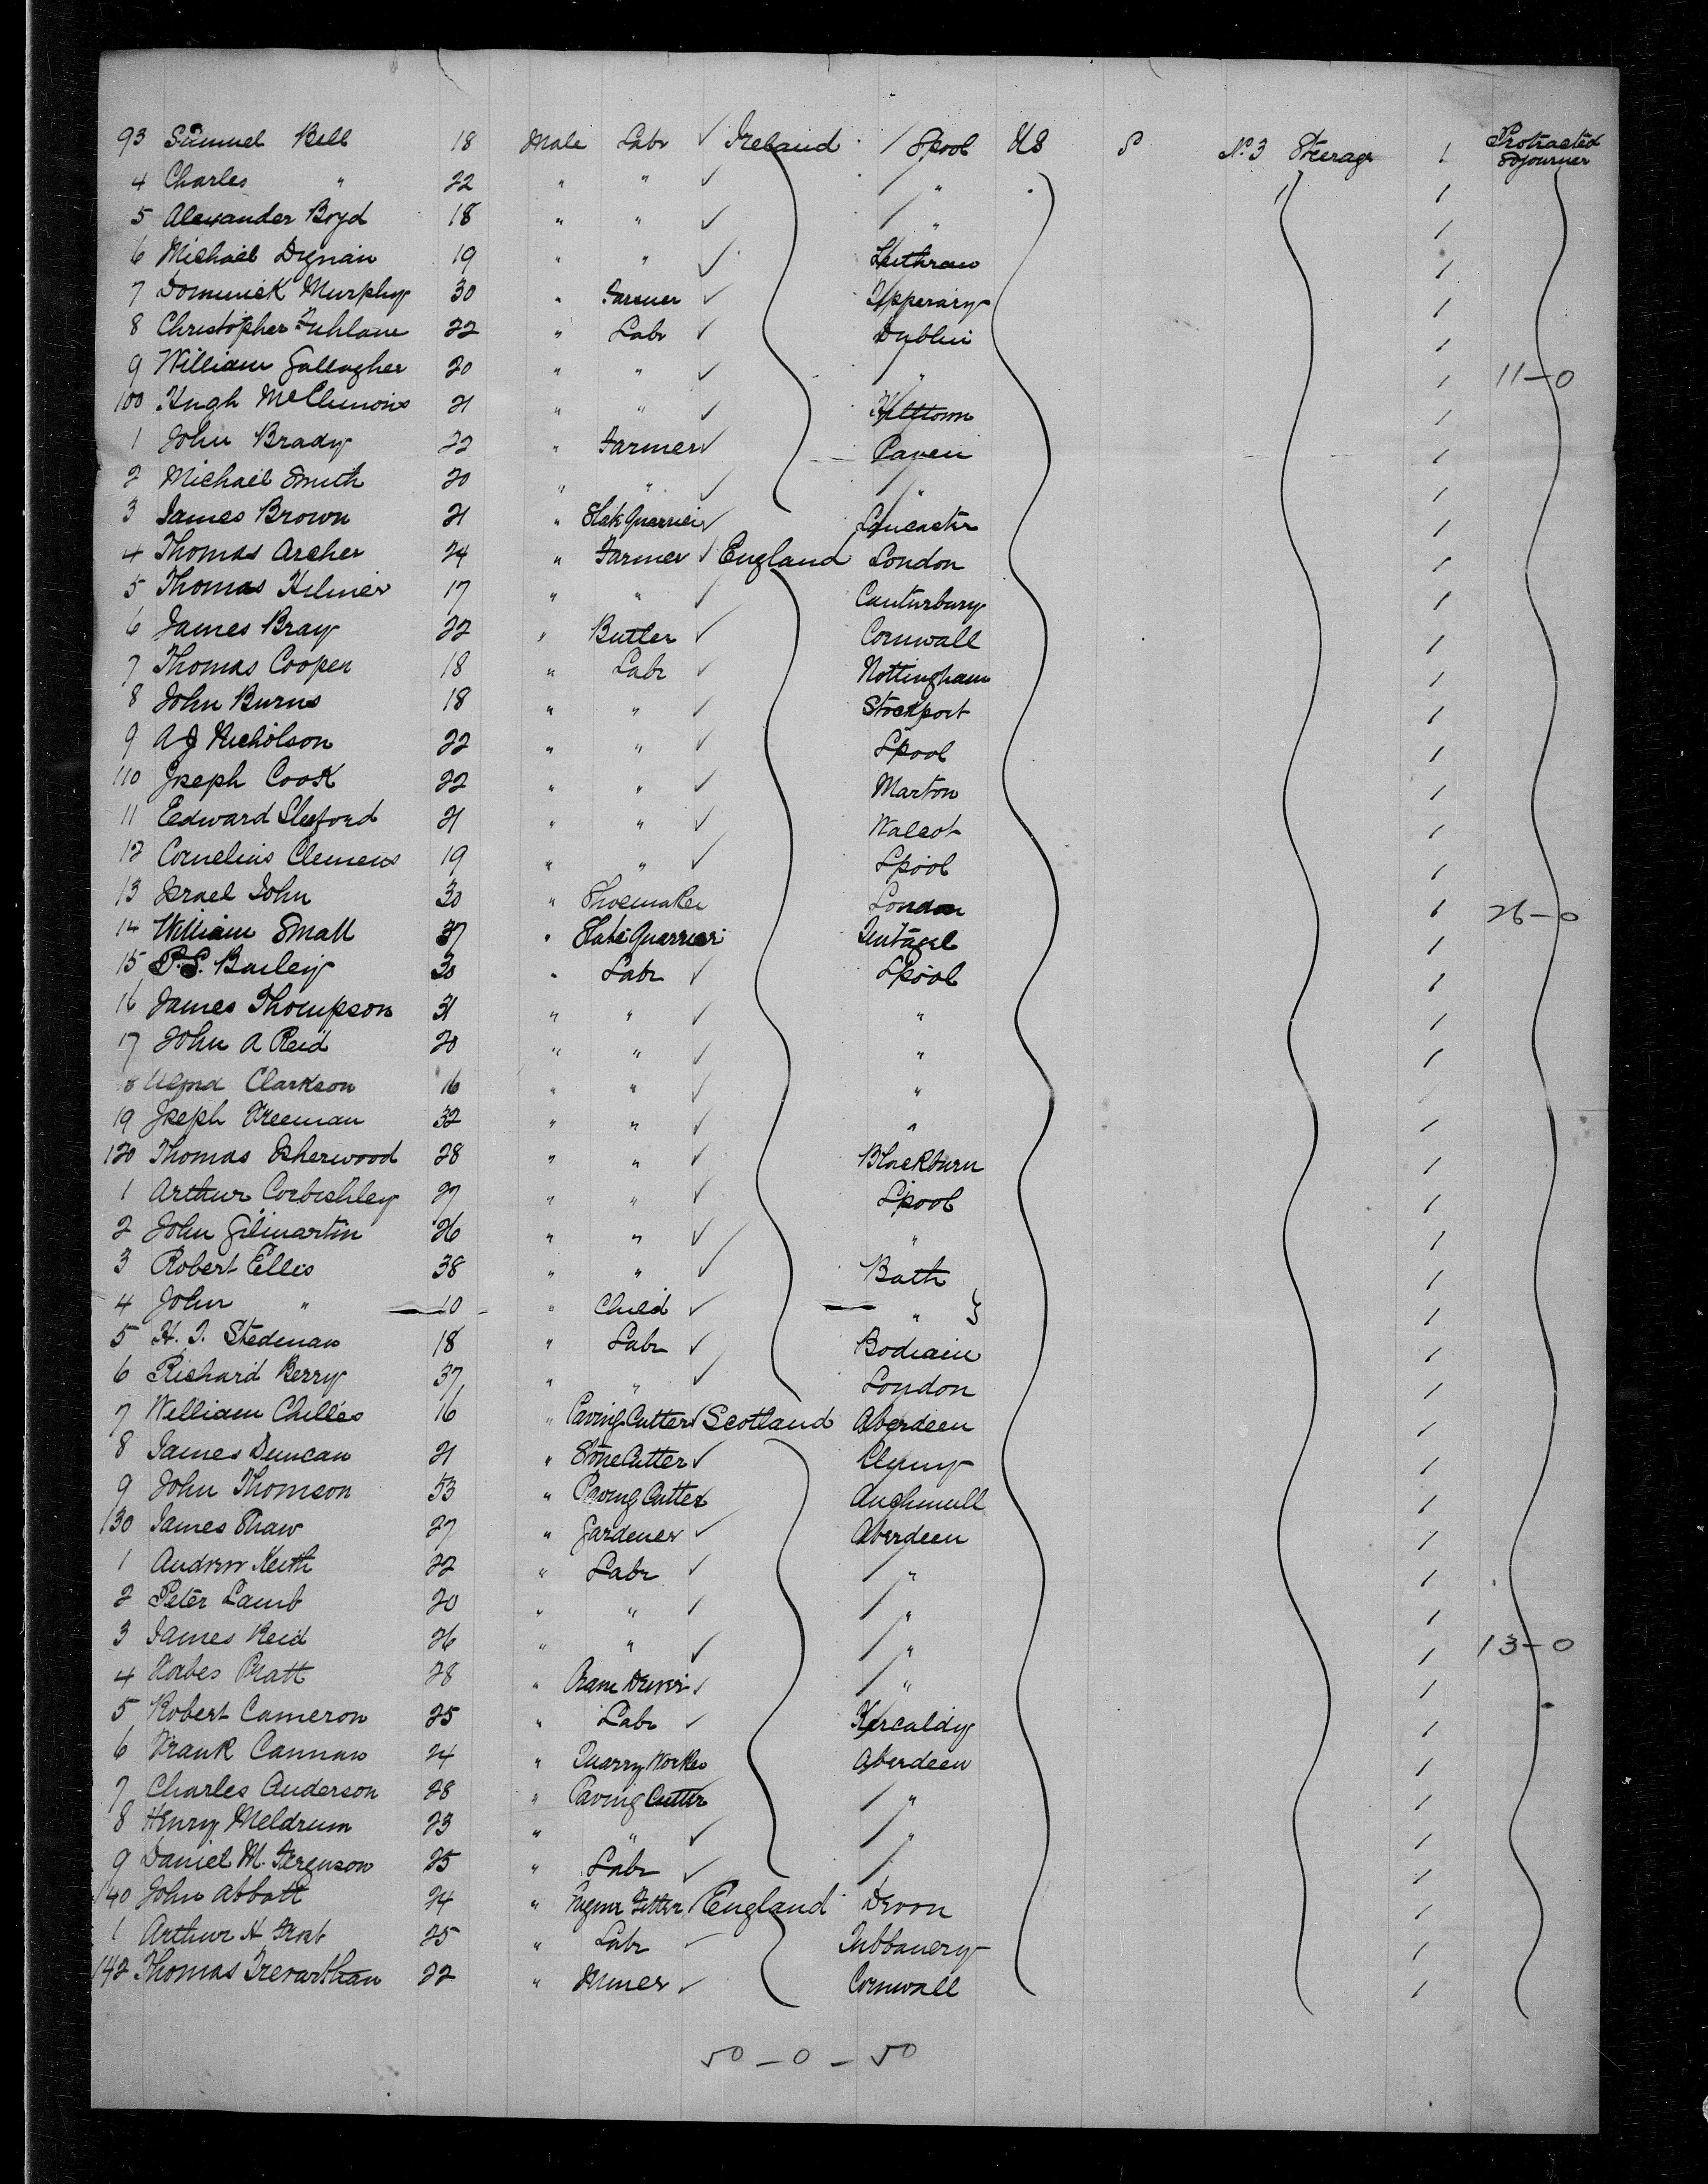 93 Samuel Bell 18 Male Labr ✓ Ireland / Lpool US S No. 3 Steerage 1 Protracted Sojourner
4 Charles " 22 " " ✓ / " 1
5 Alexander Boyd 18 " " ✓ / " 1
6 Michael Dignan 19 " " ✓ 1
7 Dominick Murphy 30 " Farmer ✓ Tipperary 1
8 Christopher 22 " Labr ✓ Dublin 1
9 William Gallagher 20 " " ✓ / " 1 11-0
100 Hugh McClimons 21 " " ✓ 1
1 John Brady 22 " Farmer ✓ Caven 1
2 Michael Smith 20 " " ✓ / " 1
3 James Brown 21 " Slate Quarrier ✓ Lancaster 1
4 Thomas Archer 24 " Farmer ✓ England London 1
5 Thomas Hilmer 17 " " ✓ Canturbury 1
6 James Bray 22 " Butler ✓ Cornwall 1
7 Thomas Cooper 18 " Labr ✓ Nottingham 1
8 John Burns 18 " " ✓ Stockport 1
9 A J Nicholson 22 " " ✓ Lpool 1
110 Joseph Cook 22 " " ✓ Marton 1
11 Edward Sleeford 21 " " ✓ Walcot 1
12 Cornelius Clemens 19 " " ✓ Lpool 1
13 Israel John 30 " Shoemaker London 1 26-0
14 William Small 37 " Slate Quarrier Tintagel 1
15 P.S. Bailey 30 " Labr ✓ Lpool 1
16 James Thompson 31 " " ✓ " 1
17 John A Reid 20 " " ✓ " 1
8 Clarkson 16 " " ✓ " 1
19 Joseph Freeman 32 " " ✓ " 1
120 Thomas Isherwood 28 " " ✓ Blackburn 1
1 Arthur Corbishley 27 " " ✓ Lpool 1
2 John Gilmartin 26 " " ✓ " 1
3 Robert Ellis 38 " " ✓ Bath 1
4 John " 10 " Child ✓ " } 1
5 H. J. Stedman 18 " Labr ✓ Bodiam 1
6 Richard Berry 37 " " ✓ London 1
7 William Chilles 16 " Paving Cutter ✓ Scotland Aberdeen 1
8 James Duncan 21 " Stone Cutter ✓ Cluny 1
9 John Thomson 53 " Paving Cutter Auchmull 1
130 James Shaw 27 " Gardener ✓ Aberdeen 1
1 Andrew Keith 22 " Labr ✓ / " 1
2 Peter Lamb 20 " " ✓ / " 1
3 James Reid 26 " " ✓ / " 1 13-0
4 Forbes Pratt 28 " Crane Driver ✓ / " 1
5 Robert Cameron 25 " Labr ✓ Kircaldy 1
6 Frank Cannan 24 " Quarry Worker Aberdeen 1
7 Charles Anderson 28 " Paving Cutter / " 1
8 Henry Meldrum 23 " " ✓ / " 1
9 Daniel M. Ferguson 25 " Labr ✓ / 1
140 John Abbott 24 " Fitter ✓ England Devon 1
1 Arthur H Frost 25 " Labr ✓ 1
142 Thomas Trevarthan 22 " Miner ✓ Cornwall 1
50 - 0 - 50